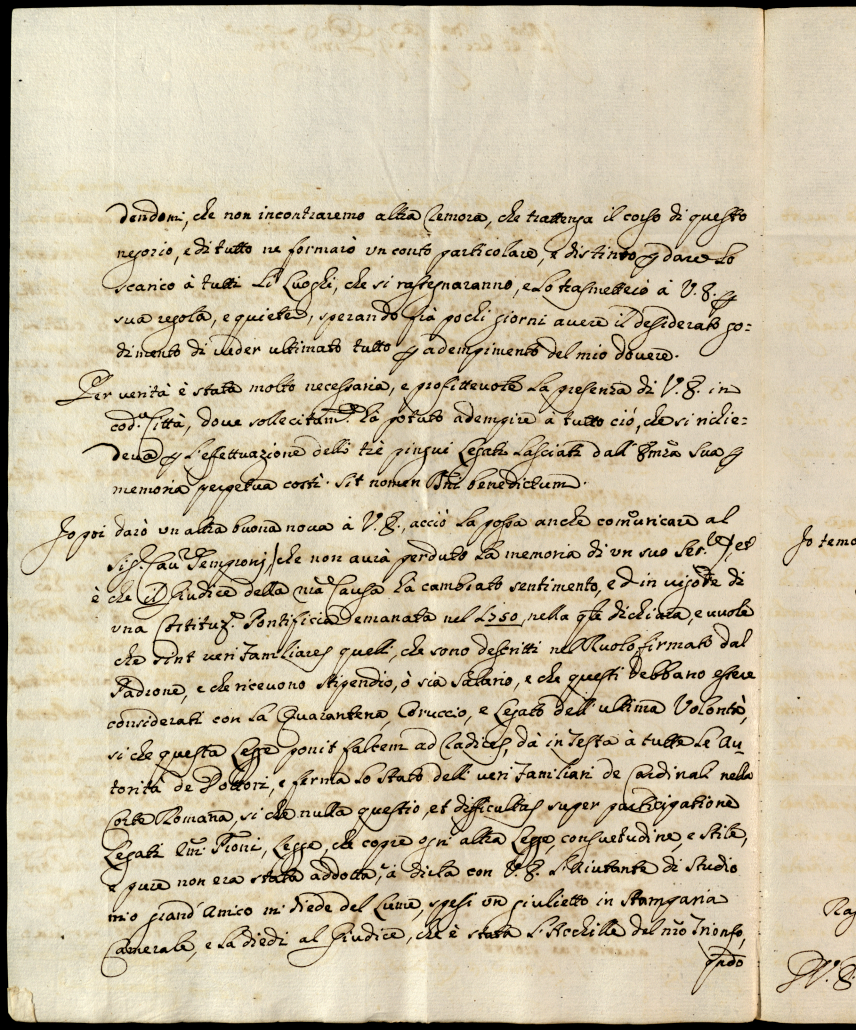 dendomi, che non incontraremo altra remora, che trattenga il corso di questo
negozio, e di tutto ne formarò un conto particolare, e distinto p dare lo
scarico à tutti li Luoghi, che si rassegnaranno, e lo trasmetterò à V. E. p
sua regola, e quiete, sperando frà pochi giorni avere il desiderato go:
dimento di veder ultimato tutto p adempimento del mio dovere.
Per verità è stata molto necessaria, e profittevole la presenza di V. E. in
cod.a Città, dove sollecitam.te hà potuto adempire à tutto ciò, che si richie=
deva p l'effettuazione delli trè pingui Legati lasciati dall' Emza Sua p
memoria perpetua costì. Sit nomen Dni benedictum.
Io poi darò un altra buona nova à V. E., acciò la possa anche comunicare al
Sig.r Cav.r Tempioni, che non avrà perduto la memoria di un suo Ser.re, ed
è che il Giudice della nra Causa hà cambiato sentimento, ed in vigore di
una Costituz.e Pontificia emanata nel 1750, nella qle dichiara, e vuole
che sint veri Familiares quelli, che sono descritti nel Ruolo firmato dal
Padrone, e che ricevono stipendio, ò sia salario, e che questi debbano essere
considerati con la Quarantena, Coruccio, e Legato dell' ultima Volontà,
si che questa Legge ponit saltem ad radices, dà in Testa à tutte le Au=
torità de Dottori, e ferma lo stato delli veri Familiari de Cardinali nella
Corte Romana, si che nulla questio, et difficultas super participatione
Legati Emi Pioni, Legge, che copre ogni altra Legge, consuetudine, e stile,
e pure non era stata addotta, à dirla con V. E. l'Aiutante di Studio
mio grand' Amico mi diede del Lume, spesi un giulietto in Stamparia
Camerale, e la diedi al Giudice, che è stata l'Acchille del nro Trionfo,
qndo
Io temo
Rag
V. E.